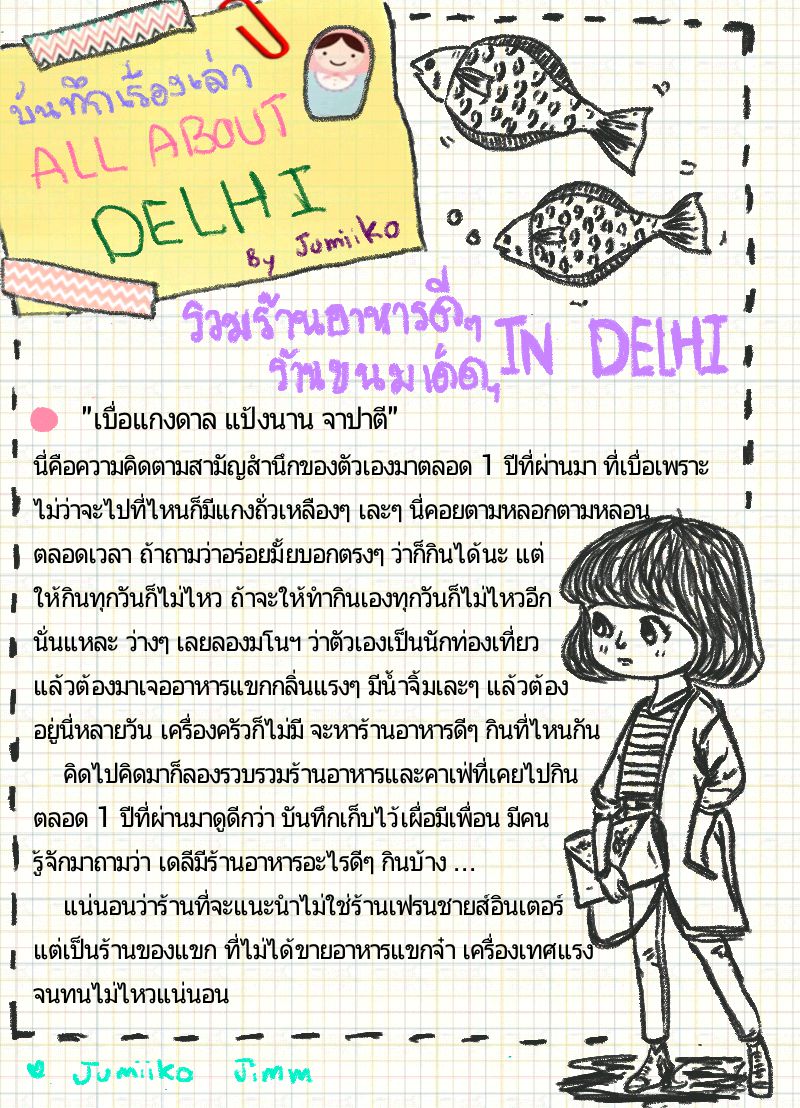 บันทึกเรื่องเล่า
ALL ABOUT
DELHI
By Jumiiko
รวมร้านอาหารดีๆ IN DELHI
ร้านขนมเด็ดๆ
"เบื่อแกงดาล แป้งนาน จาปาตี"
นี่คือความคิดตามสามัญสำนึกของตัวเองมาตลอด 1 ปีที่ผ่านมา ที่เบื่อเพราะ
ไม่ว่าจะไปที่ไหนก็มีแกงถั่วเหลืองๆ เละๆ นี่คอยตามหลอกตามหลอน
ตลอดเวลา ถ้าถามว่าอร่อยมั้ยบอกตรงๆ ว่าก็กินได้นะ แต่
ให้กินทุกวันก็ไม่ไหว ถ้าจะให้ทำกินเองทุกวันก็ไม่ไหวอีก
นั่นแหละ ว่างๆ เลยลองมโนฯ ว่าตัวเองเป็นนักท่องเที่ยว
แล้วต้องมาเจออาหารแขกกลิ่นแรงๆ มีน้ำจิ้มเละๆ แล้วต้อง
อยู่นี่หลายวัน เครื่องครัวก็ไม่มี จะหาร้านอาหารดีๆ กินที่ไหนกัน
คิดไปคิดมาก็ลองรวบรวมร้านอาหารและคาเฟ่ที่เคยไปกิน
ตลอด 1 ปีที่ผ่านมาดูดีกว่า บันทึกเก็บไว้เผื่อมีเพื่อน มีคน
รู้จักมาถามว่า เดลีมีร้านอาหารอะไรดีๆ กินบ้าง ...
แน่นอนว่าร้านที่จะแนะนำไม่ใช่ร้านเฟรนชายส์อินเตอร์
แต่เป็นร้านของแขก ที่ไม่ได้ขายอาหารแขกจ๋า เครื่องเทศแรง
จนทนไม่ไหวแน่นอน
Jumiiko Jimm